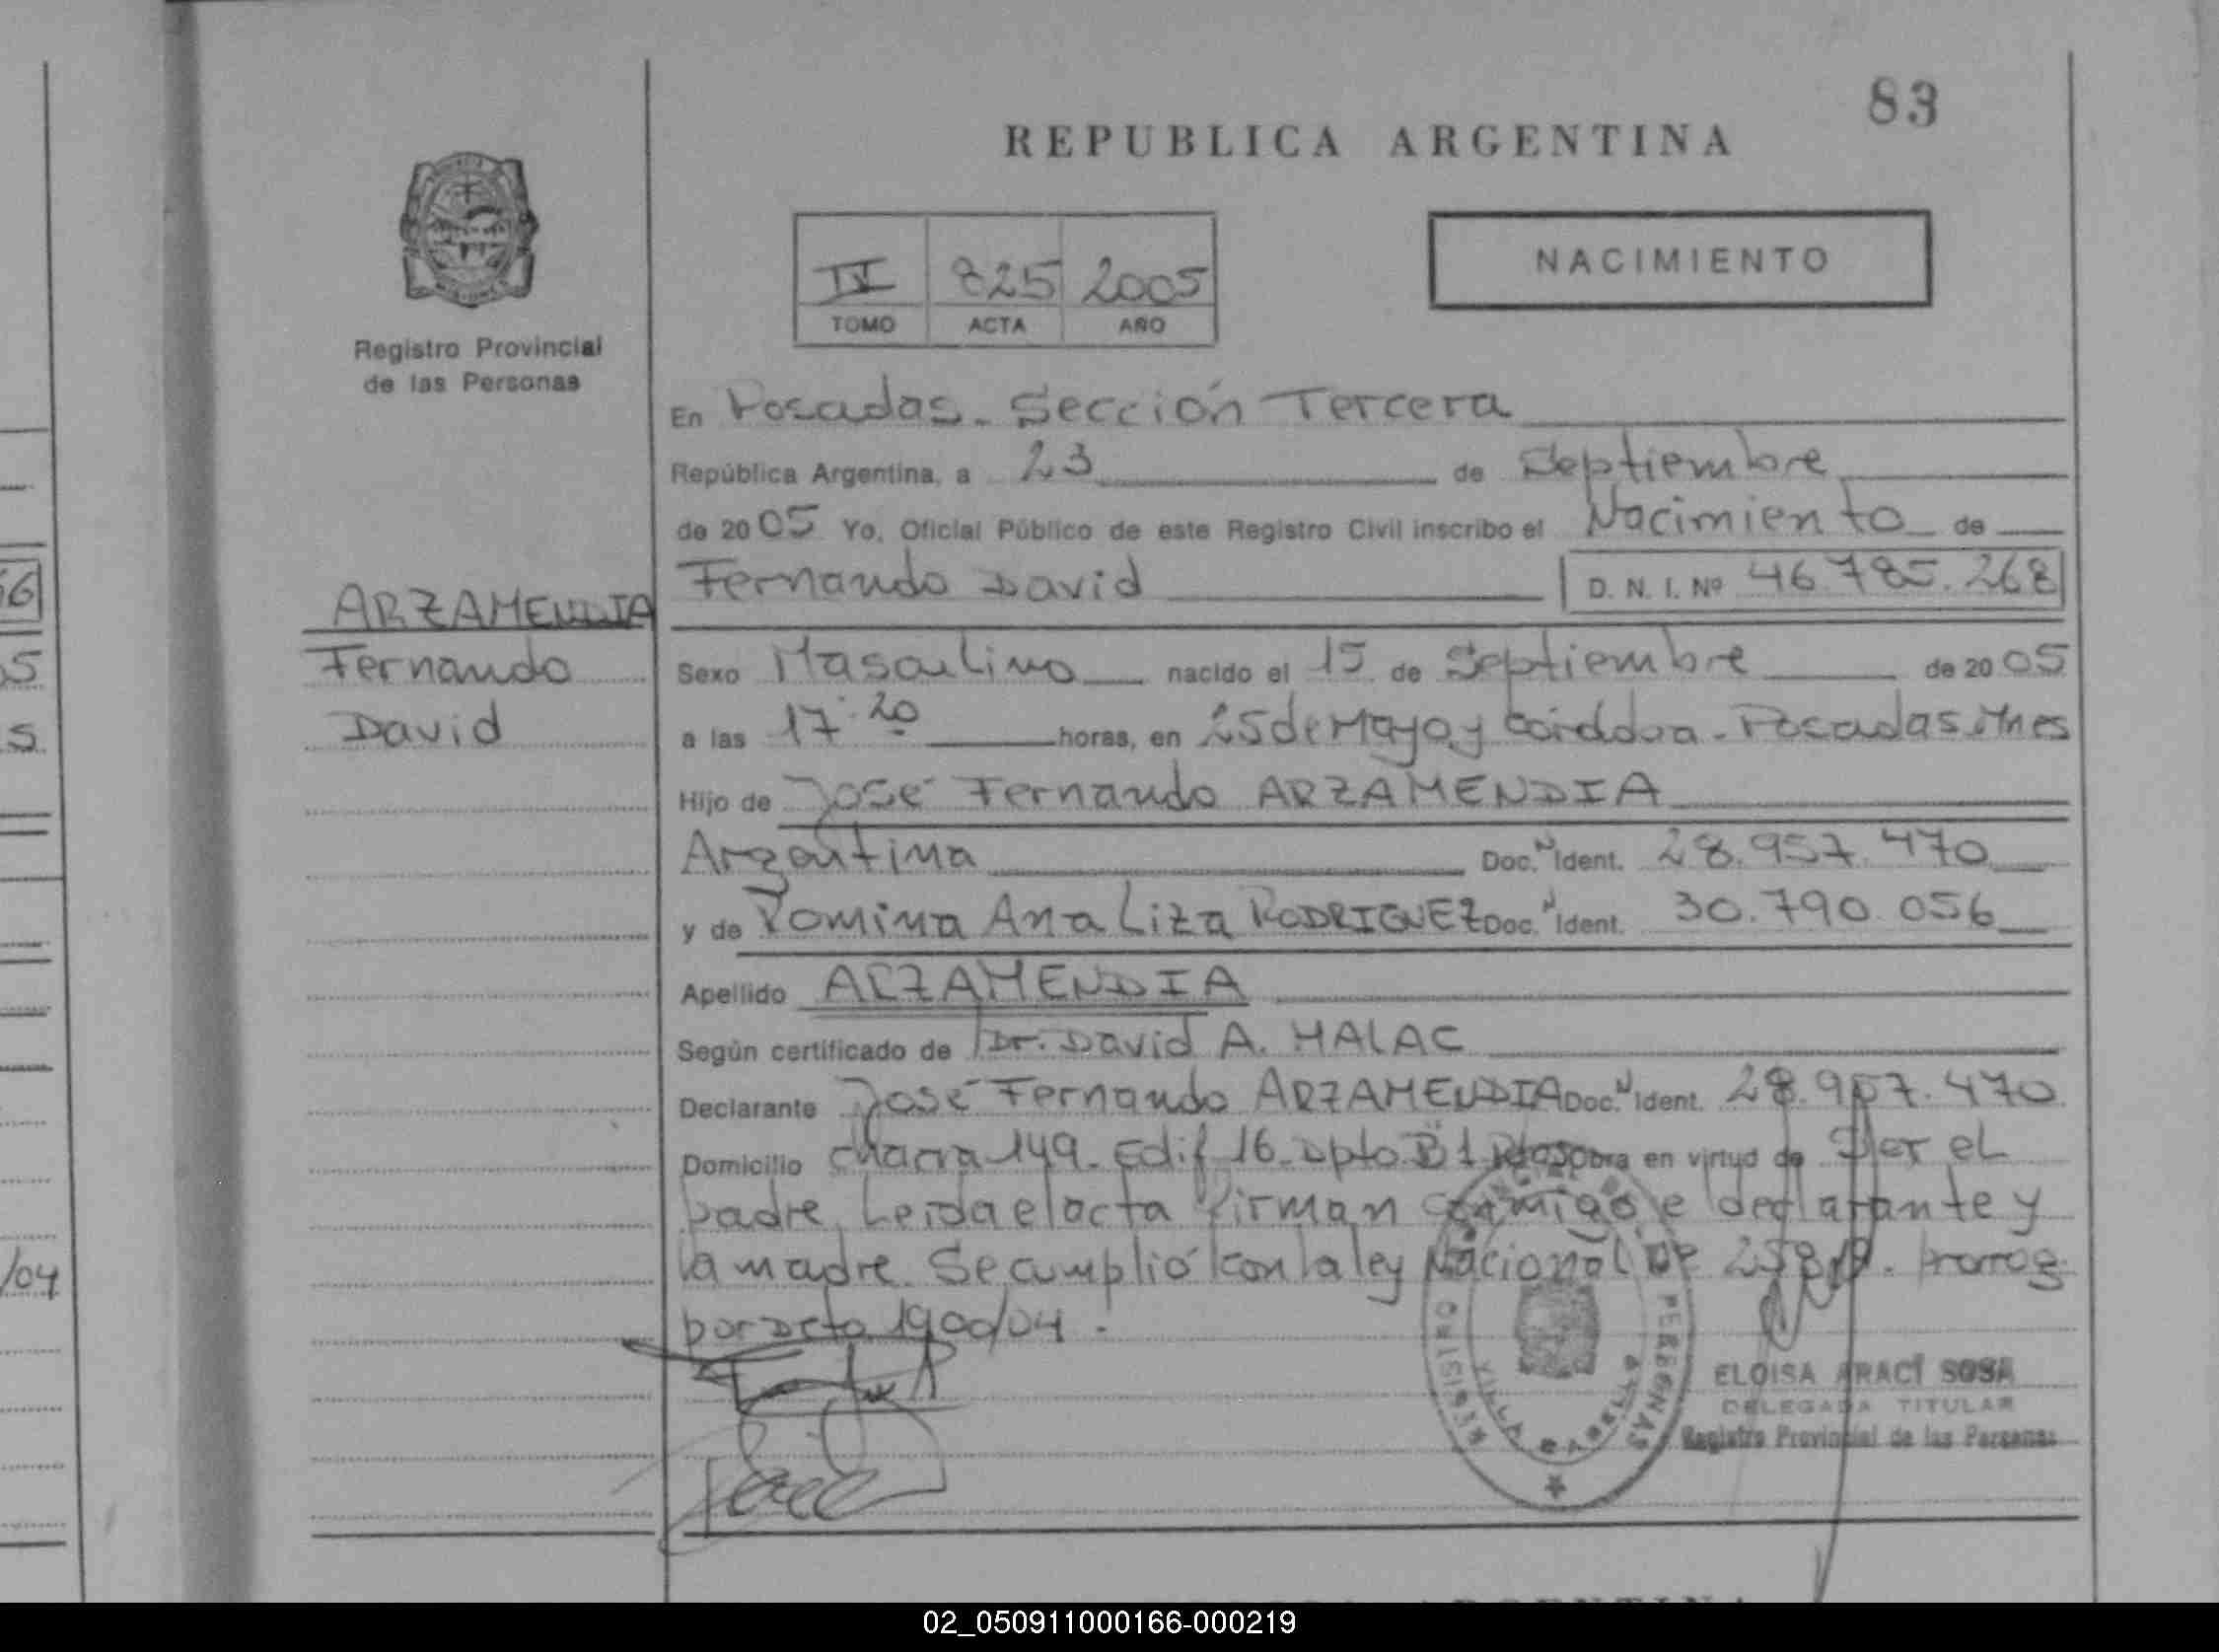 83
REPUBLICA ARGENTINA
NACIMIENTO
IV 825 2005
TOMO ACTA AÑO
Registro Provincial
de las Personas
En Posadas. Sección Tercera
República Argentina, a 23 de Septiembre
de 2005 Yo, Oficial Público de este Registro Civil inscribo el Nacimiento de
Fernando David D. N. I. Nº 46.785.268
ARZAMENDIA
Fernando
David
Sexo Masculino nacido el 15 de Septiembre de 2005
a las 17:20 horas, en 25 de Mayo y Córdoba. Posadas Mnes
Hijo de José Fernando ARZAMENDIA
Argentina Doc. N Ident. 28.957.470
y de Romina Ana Liza RODRIGUEZ Doc. N Ident. 30.790.056
Apellido ARZAMENDIA
Según certificado de Dr. David A. HALAC
Declarante José Fernando ARZAMENDIA Doc. N Ident. 28.957.470
Domicilio chacra 149. Edif 16. Dpto B1 Pdas obra en virtud de Ser el
padre. Leida el acta firman conmigo e declarante y
la madre. Se cumplió con la ley Nacional Nº 25819. Prorrog
por Dcto 1900/04.
ELOISA ARACÍ SOSA
DELEGADA TITULAR
Registro Provincial de las Personas
REGISTRO PERSONAS
VILLA
56
05
5
/04
REPUBLICA ARGENTINA
02_050911000166-000219